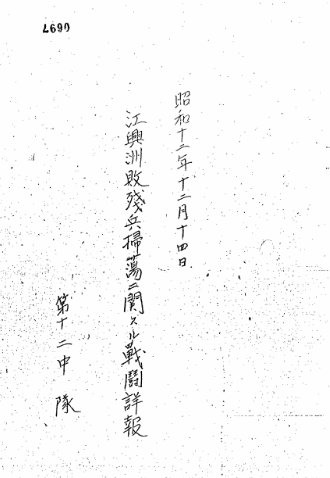 0697
昭和十二年十二月十四日
江興洲敗残兵掃蕩ニ関スル戦闘詳報
第十二中隊